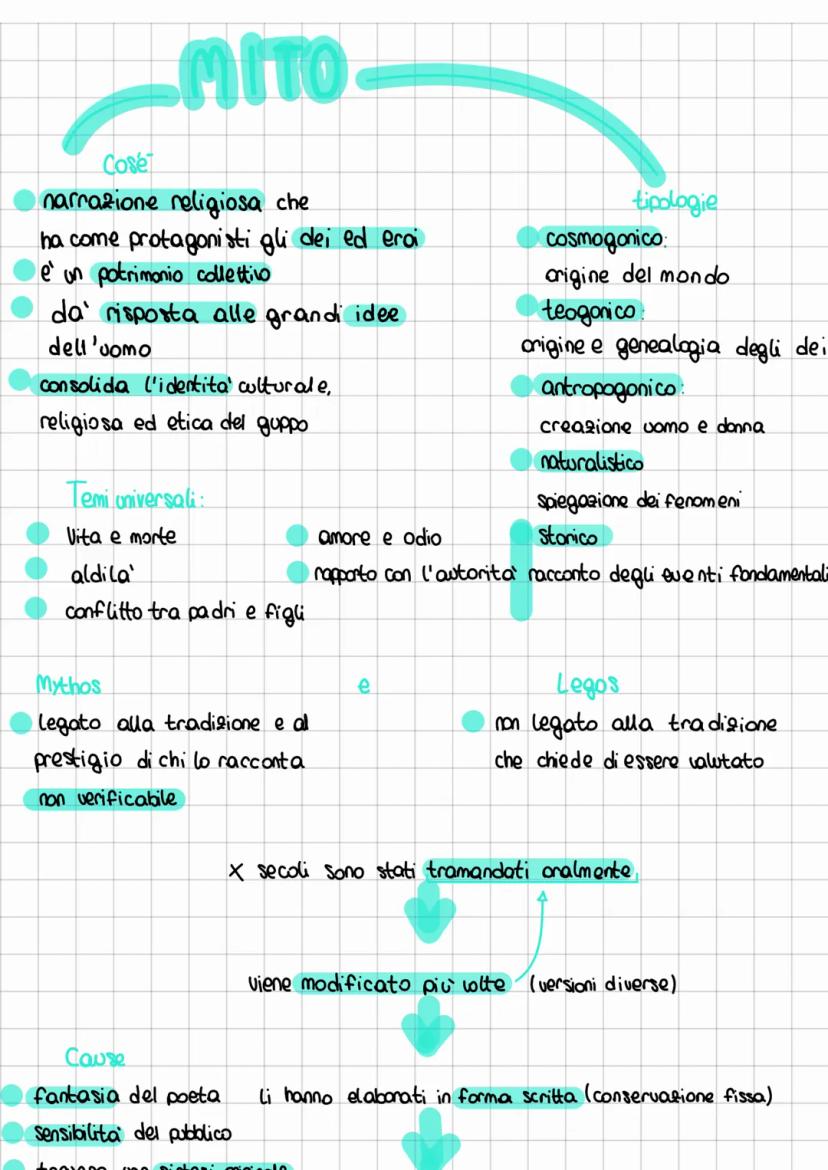 MITO
Cos'è
narrazione religiosa che
ha come protagonisti gli dei ed eroi
e' un patrimonio collettivo
da' risposta alle grandi idee
dell'uomo
consolida l'identita' culturale,
religiosa ed etica del guppo
tipologie
cosmogonico:
origine del mondo
teogonico:
origine e genealogia degli dei
antropogonico:
creazione uomo e donna
naturalistico
spiegazione dei fenomeni
storico
racconto degli eventi fondamentali
Temi universali:
Vita e morte
aldila'
conflitto tra padri e figli
amore e odio
rapporto con l'autorita'
Mythos e Legos
legato alla tradizione e al
prestigio di chi lo racconta
non verificabile
non legato alla tradizione
che chiede di essere valutato
x secoli sono stati tramandati oralmente
viene modificato piu' volte (versioni diverse)
Cause
fantasia del poeta
sensibilita' del pubblico
li hanno elaborati in forma scritta (conservazione fissa)